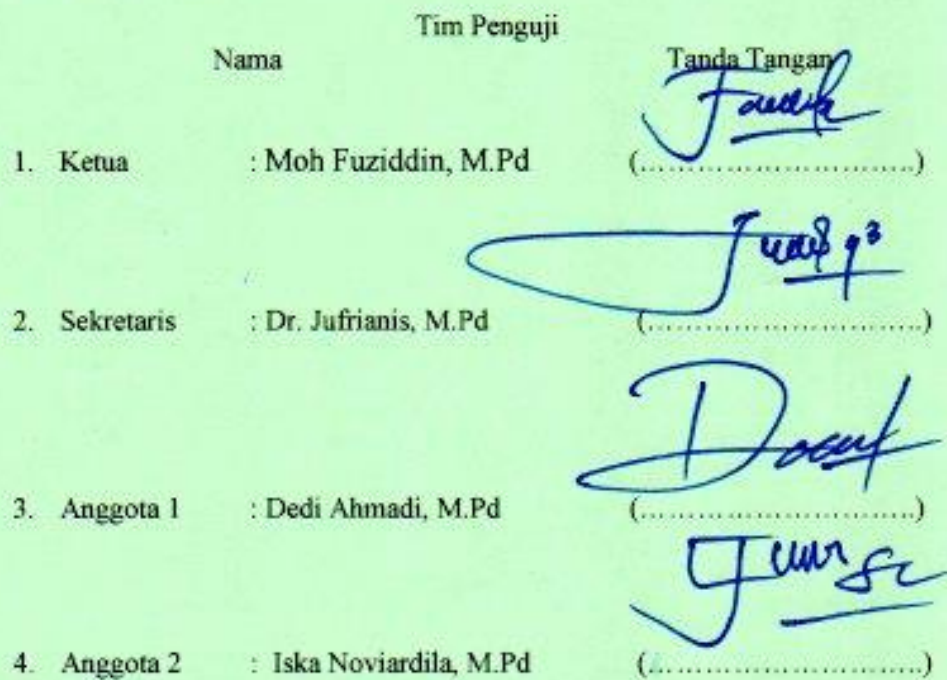 Tim Penguji
Nama Tanda Tangan
1. Ketua : Moh Fuziddin, M.Pd (............................)
2. Sekretaris : Dr. Jufrianis, M.Pd (............................)
3. Anggota 1 : Dedi Ahmadi, M.Pd (............................)
4. Anggota 2 : Iska Noviardila, M.Pd (............................)